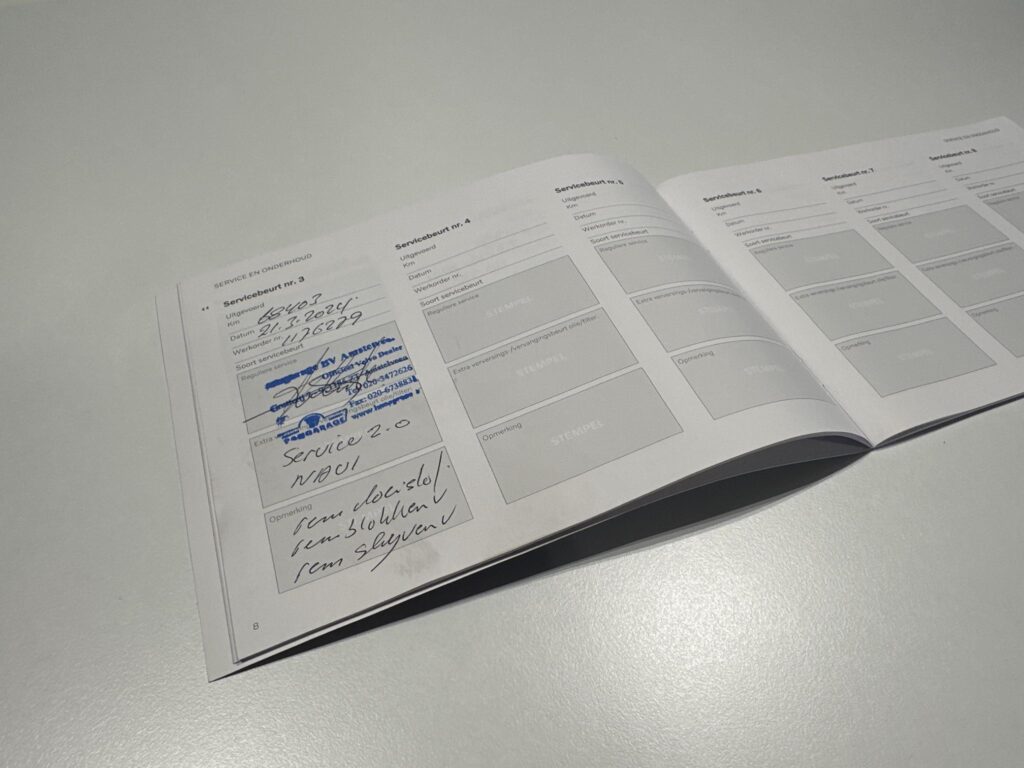 SERVICE EN ONDERHOUD
Servicebeurt nr. 3
Uitgevoerd
Km 68403
Datum 21.3.2024.
Werkorder nr. 1176279
Soort servicebeurt
Reguliere service
BV Amstelveen
Official Volvo Dealer
Tel 020-3472626
Fax: 020-6738831
www.
Extra
Service 2.0
NAVI
Opmerking
rem vloeistof
rem blokken v
rem schyven v
8
Servicebeurt nr. 4
Uitgevoerd
Km
Datum
Werkorder nr.
Soort servicebeurt
Reguliere service
STEMPEL
Extra verversings-/vervangingsbeurt olie/filter
STEMPEL
Opmerking
STEMPEL
Servicebeurt nr. 5
Uitgevoerd
Km
Datum
Werkorder nr.
Soort servicebeurt
Reguliere service
STEMPEL
Extra verversings-/vervangingsbeurt
STEMPEL
Opmerking
STEMPEL
SERVICE EN ONDERHOUD
Servicebeurt nr. 6
Uitgevoerd
Km
Datum
Werkorder nr.
Soort servicebeurt
Reguliere service
Extra verversings-/vervangingsbeurt olie/filter
Opmerking
STEMPEL
Servicebeurt nr. 7
Uitgevoerd
Km
Datum
Werkorder nr.
Soort servicebeurt
Reguliere service
Extra verversings-/vervangingsbeurt olie/filter
Opmerking
STEMPEL
Servicebeurt nr. 8
Uitgevoerd
Km
Datum
Werkorder nr.
Soort servicebeurt
Opmerking